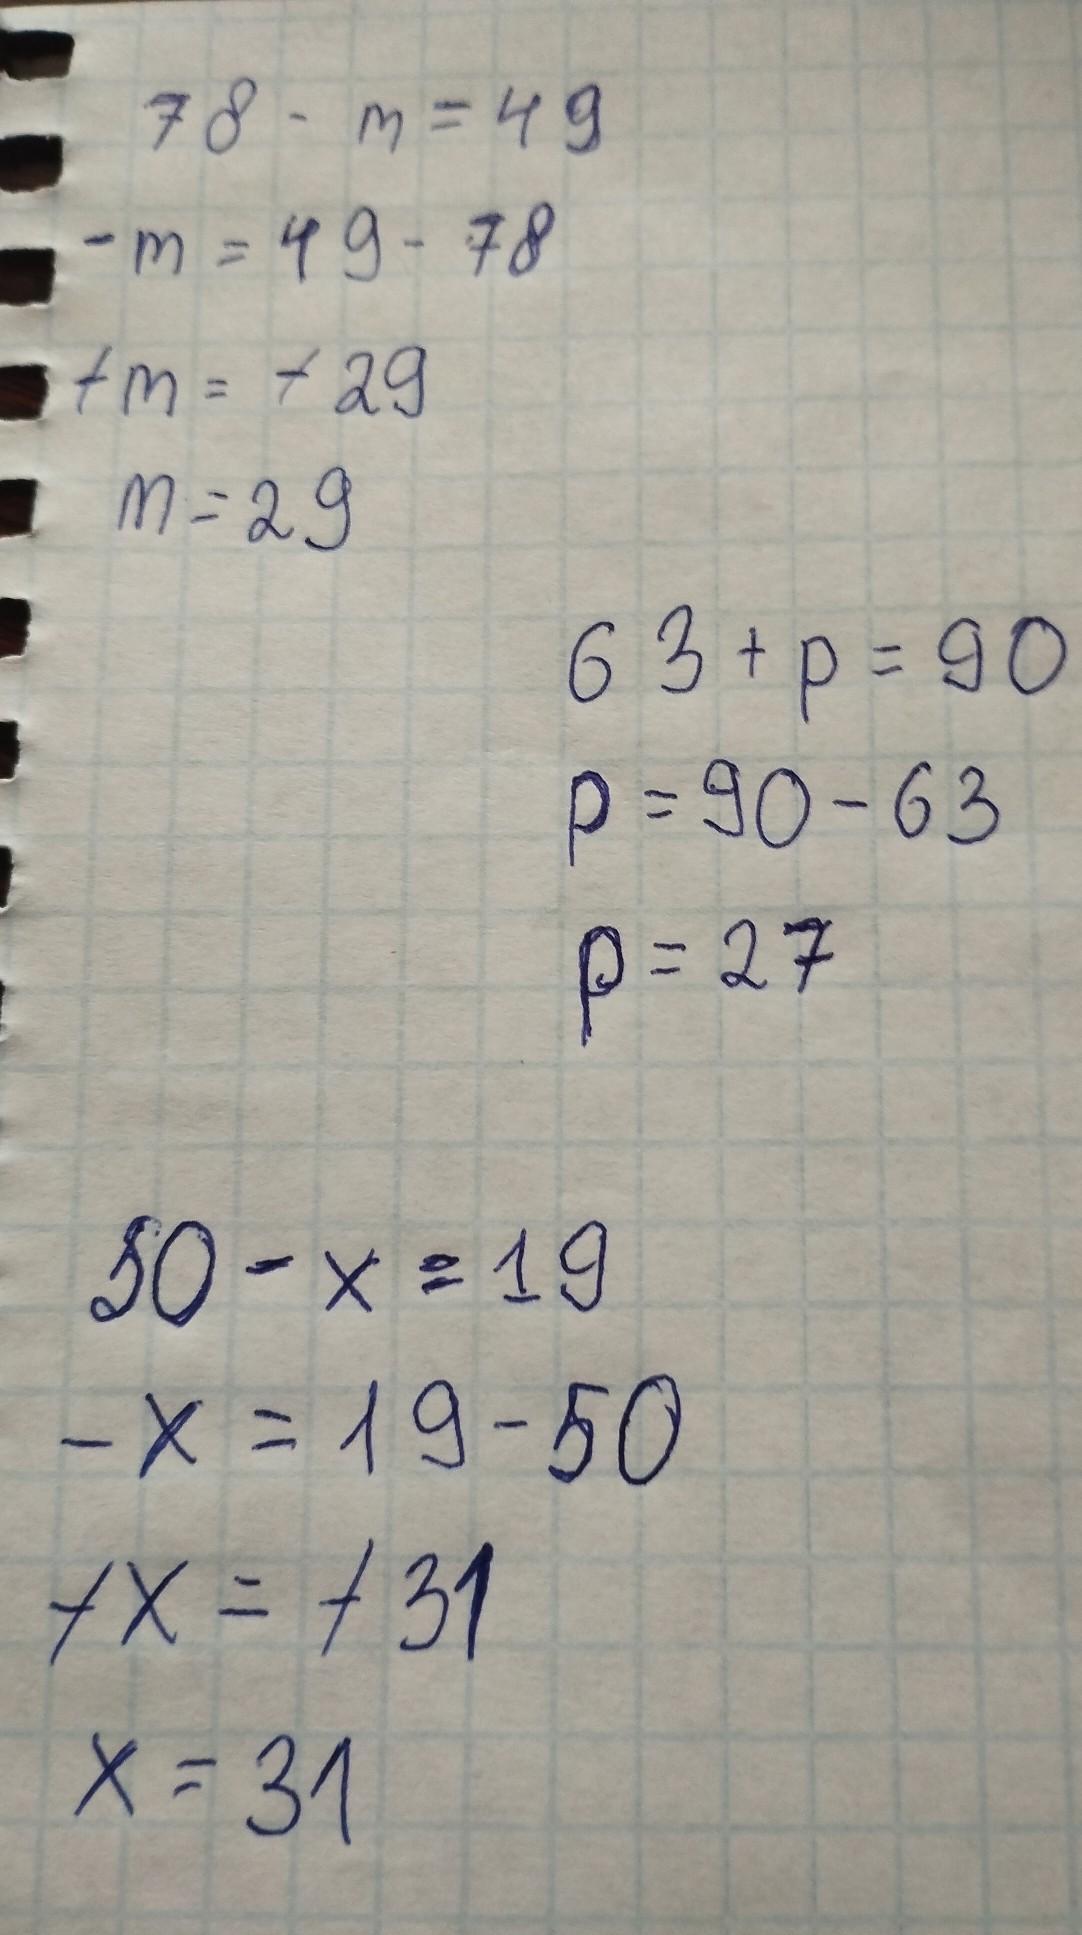 78 - m = 49
-m = 49 - 78
-m = -29
m = 29
63 + p = 90
p = 90 - 63
p = 27
50 - x = 19
-x = 19 - 50
-x = -31
x = 31